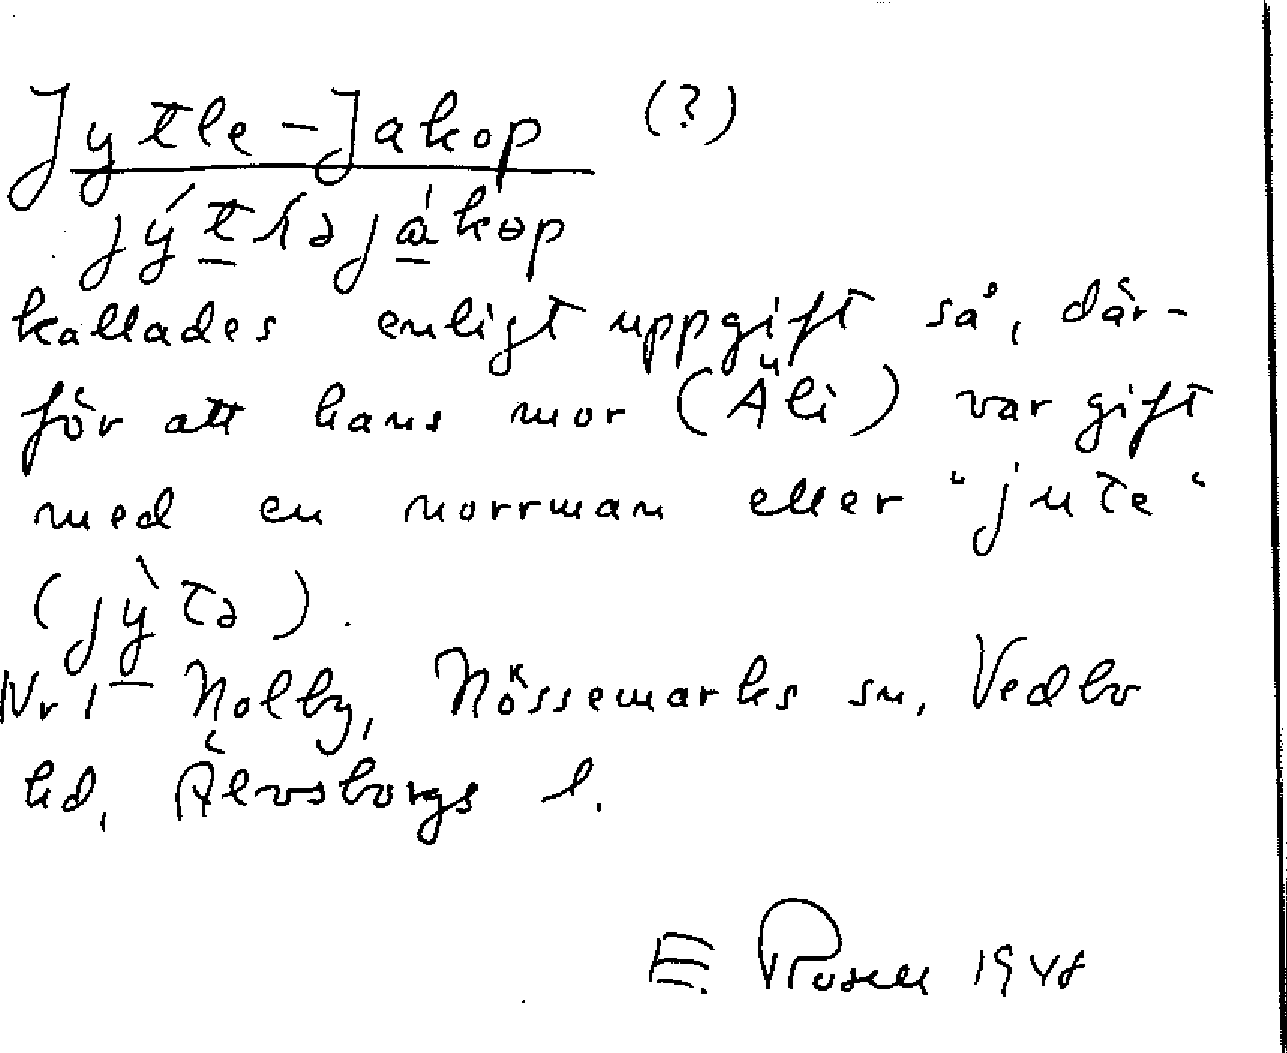 Jytle-Jakop (?)
jýtləjákop
kallades enligt uppgift så, där-
för att hans mor (Äli) var gift
med en norrman eller "jute"
(jỳtə).
Nr 1 Nolby, Nössemarks sn, Vedbo
hd, Älvsborgs l.
E. Rosell 1948